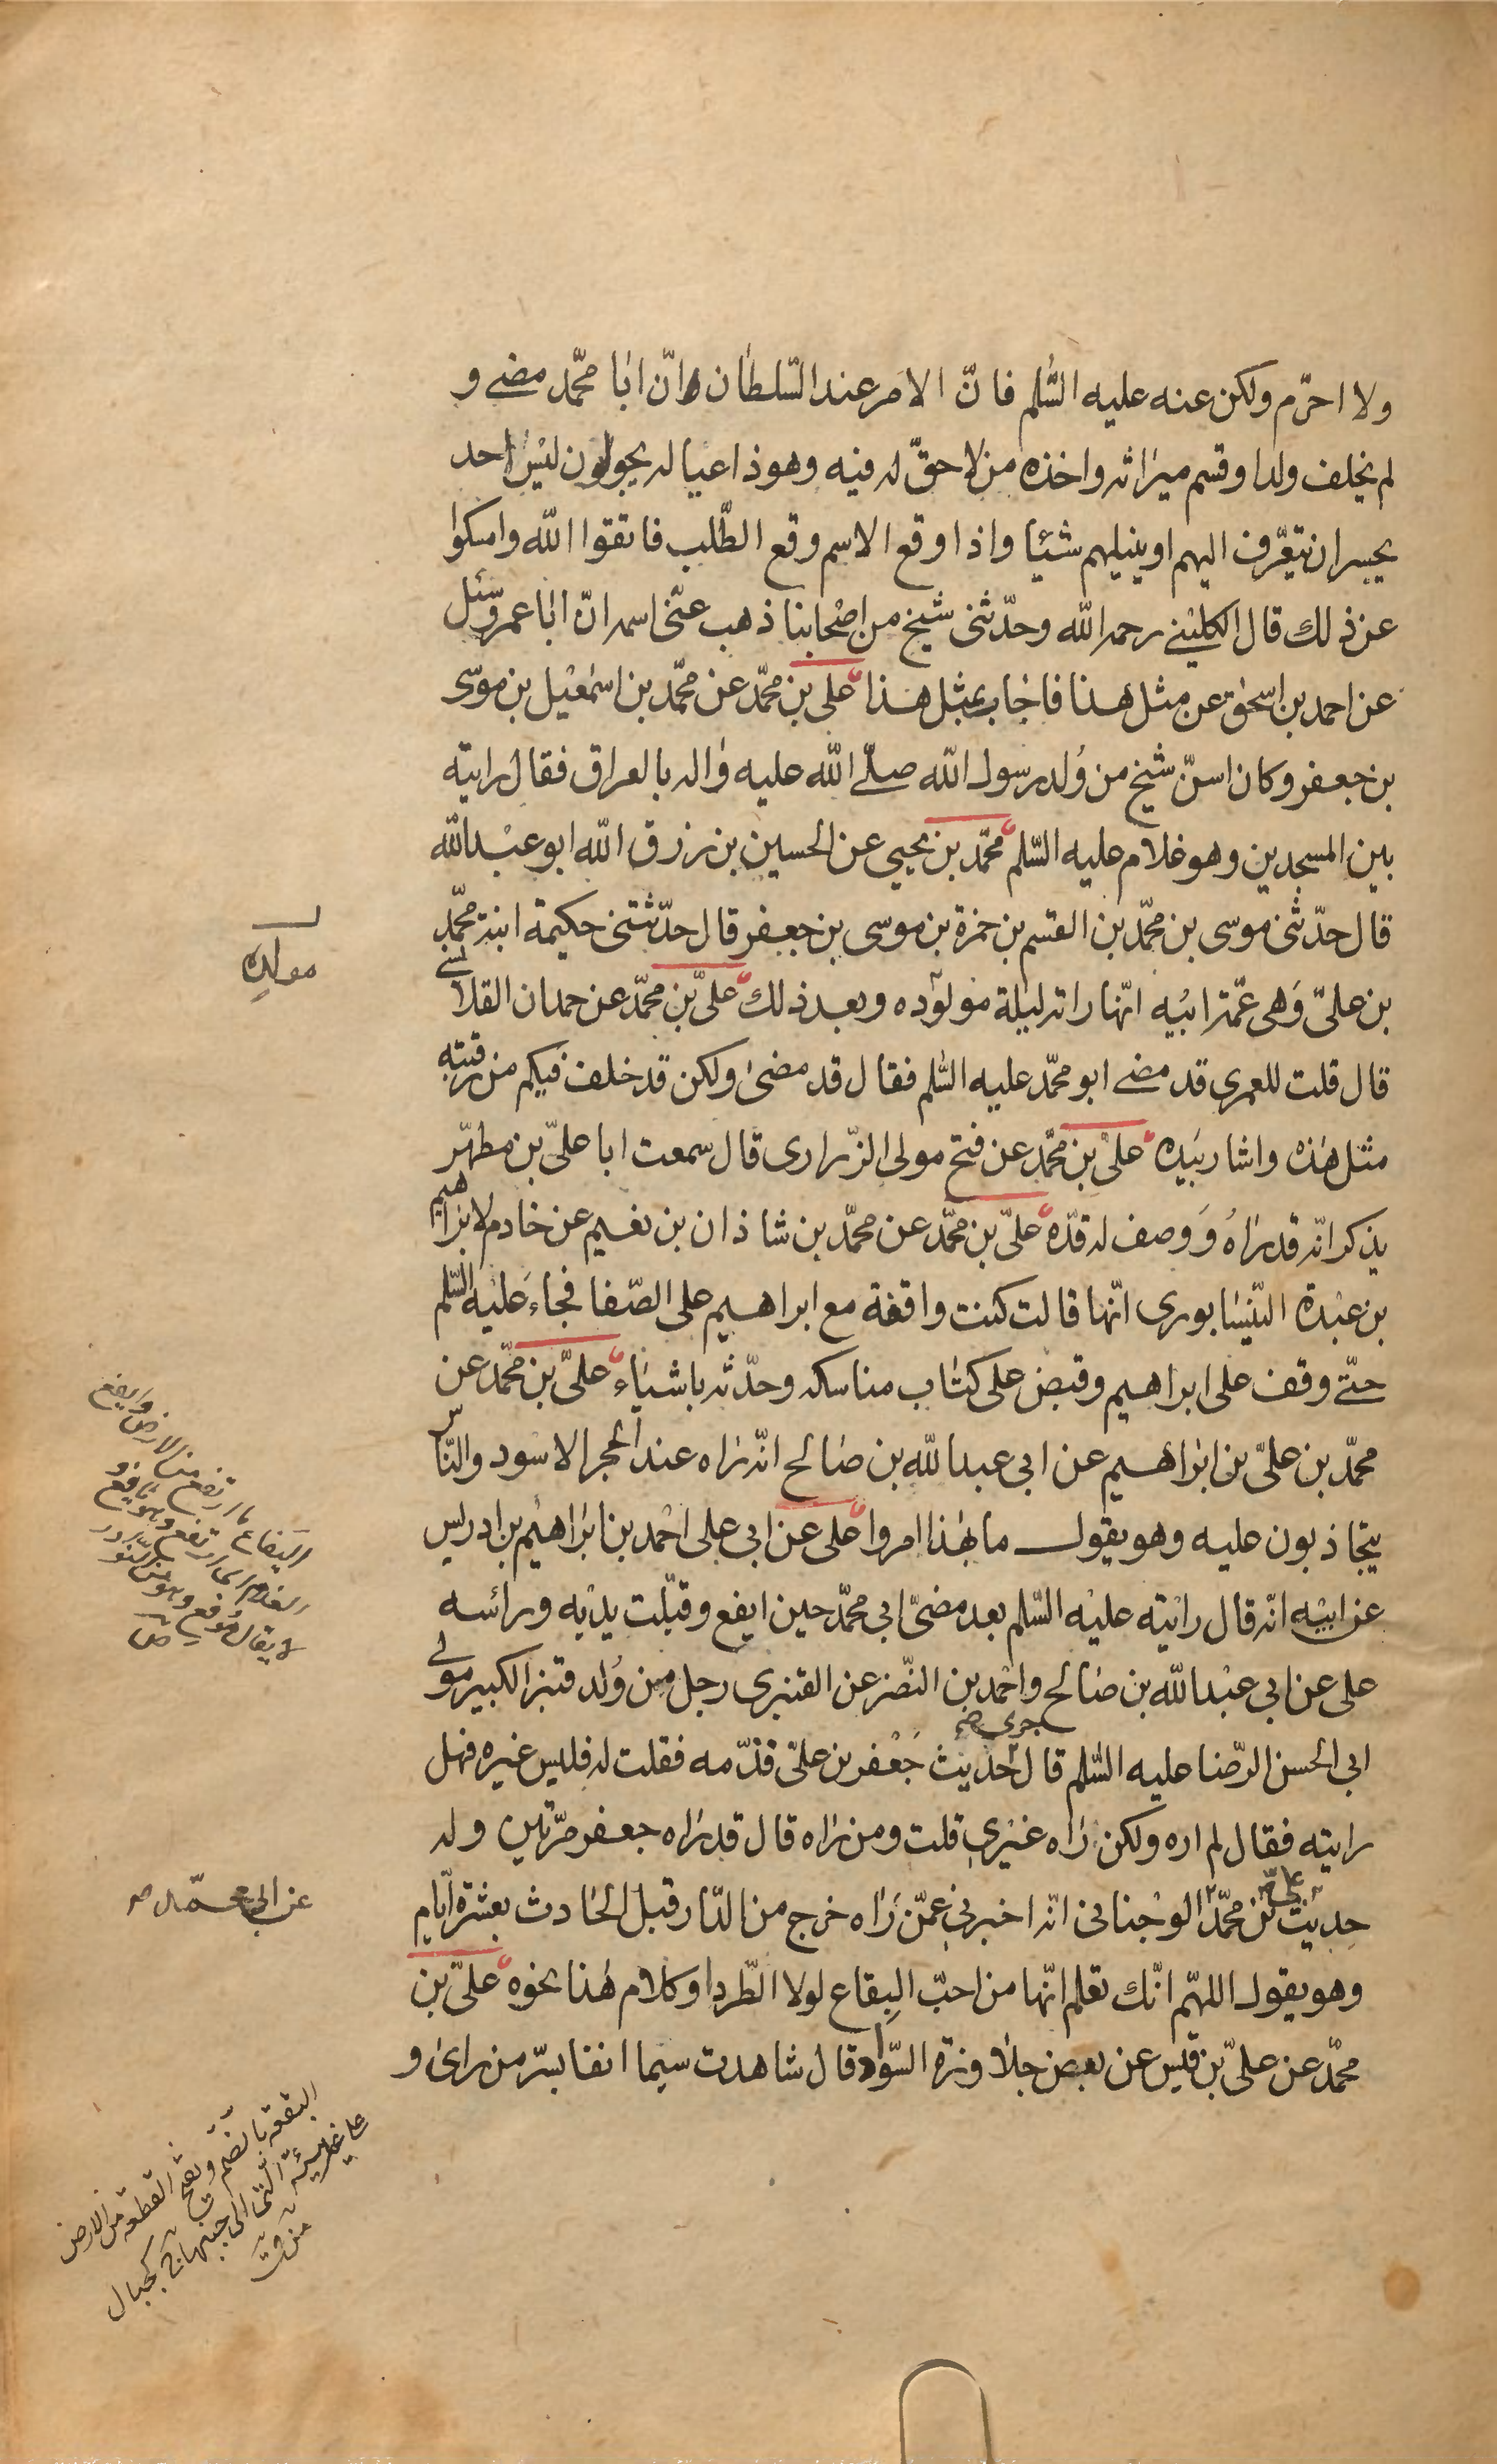 ولا احرّم ولكن عنه عليه السّلم فانّ الامر عند السّلطان انّ ابا محمّد مضى و
لم يخلف ولدا وقسم ميراثه واخذه من لا حقّ له فيه وهو ذا عياله يجولون ليس احد
يجسر ان يتعرّف اليهم او ينيلهم شيئا واذا وقع الاسم وقع الطّلب فاتقوا الله وامسكوا
عن ذلك قال الكلينى رحمه الله وحدّثنى شيخ من اصحابنا ذهب عنّى اسمه انّ ابا عمرو سئل
عن احمد بن اسحق عن مثل هذا فاجاب بمثل هذا علىّ بن محمّد عن محمّد بن اسمعيل بن موسى
بن جعفر وكان اسنّ شيخ من وُلد رسول الله صلّى الله عليه واله بالعراق فقال رايته
بين المسجدين وهو غلام عليه السّلم محمّد بن يحيى عن الحسين بن رزق الله ابو عبد الله
قال حدّثنى موسى بن محمّد بن القسم بن حمزة بن موسى بن جعفر قال حدّثتنى حكيمة ابنة محمّد
بن علىّ وَهى عمّة ابيه انّها راته ليلة مولوده وبعد ذلك علىّ بن محمّد عن حمدان القلانسى
قال قلت للعمرى قد مضى ابو محمّد عليه السّلم فقال قد مضى ولكن قد خلف فيكم من رقبته
مثل هذه واشار بيده علىّ بن محمّد عن فتح مولى الزّرارى قال سمعت ابا علىّ بن مطهّر
يذكر انّه قد راهُ وَوصف له قدّه علىّ بن محمّد عن محمّد بن شاذان بن نعيم عن خادم لابراهيم
بن عبدة النّيسابورى انّها قالت كنت واقفة مع ابراهيم على الصّفا فجاء عليه السّلم
حتّى وقف على ابراهيم وقبض على كتاب مناسكه وحدّثه باشياء علىّ بن محمّد عن
محمّد بن علىّ بن ابراهيم عن ابى عبد الله بن صالح انّه راه عند الحجر الاسود والنّاس
يتجاذبون عليه وهو يقول ما بهذا امروا على عن ابى على احمد بن ابراهيم بن ادريس
عن ابيه انّه قال رايته عليه السّلم بعد مضىّ ابى محمّد حين ايفع وقبّلت يديه ورائسه
على عن ابى عبد الله بن صالح واحمد بن النّضر عن القنبرى رجل من وُلد قنبر الكبير مولى
ابى الحسن الرّضا عليه السّلم قال جرى حديث جعفر بن علىّ فذّمه فقلت له فليس غيره فهل
رايته فقال لم اره ولكن راه غيرى قلت ومن راه قال قد راه جعفر مرّتين وله
حديث علىّ بن محمّد الوجنانى انّه اخبرنى عمّن راه خرج من الدّار قبل الحادث بعشرة ايّام
وهو يقول اللهمّ انّك تعلم انّها من احبّ البِقاع لولا الطّرد او كلام هذا نحوه علىّ بن
محمّد عن علىّ بن قيس عن بعض جلاوزة السّواد قال شاهدت سيما انفا بسرّ من راى و
مولده
اليفاع ما ارتفع من الارض وايفع
الغلام اى ارتفع وهو يافع و
لا يقال موفع وهو من النّوادر
ص
عن ابى محمّد
البقعة بالضّم ويفتح القطعة من الارض
على غير هيئة الّتى الى جنبها ج كجبال
ق